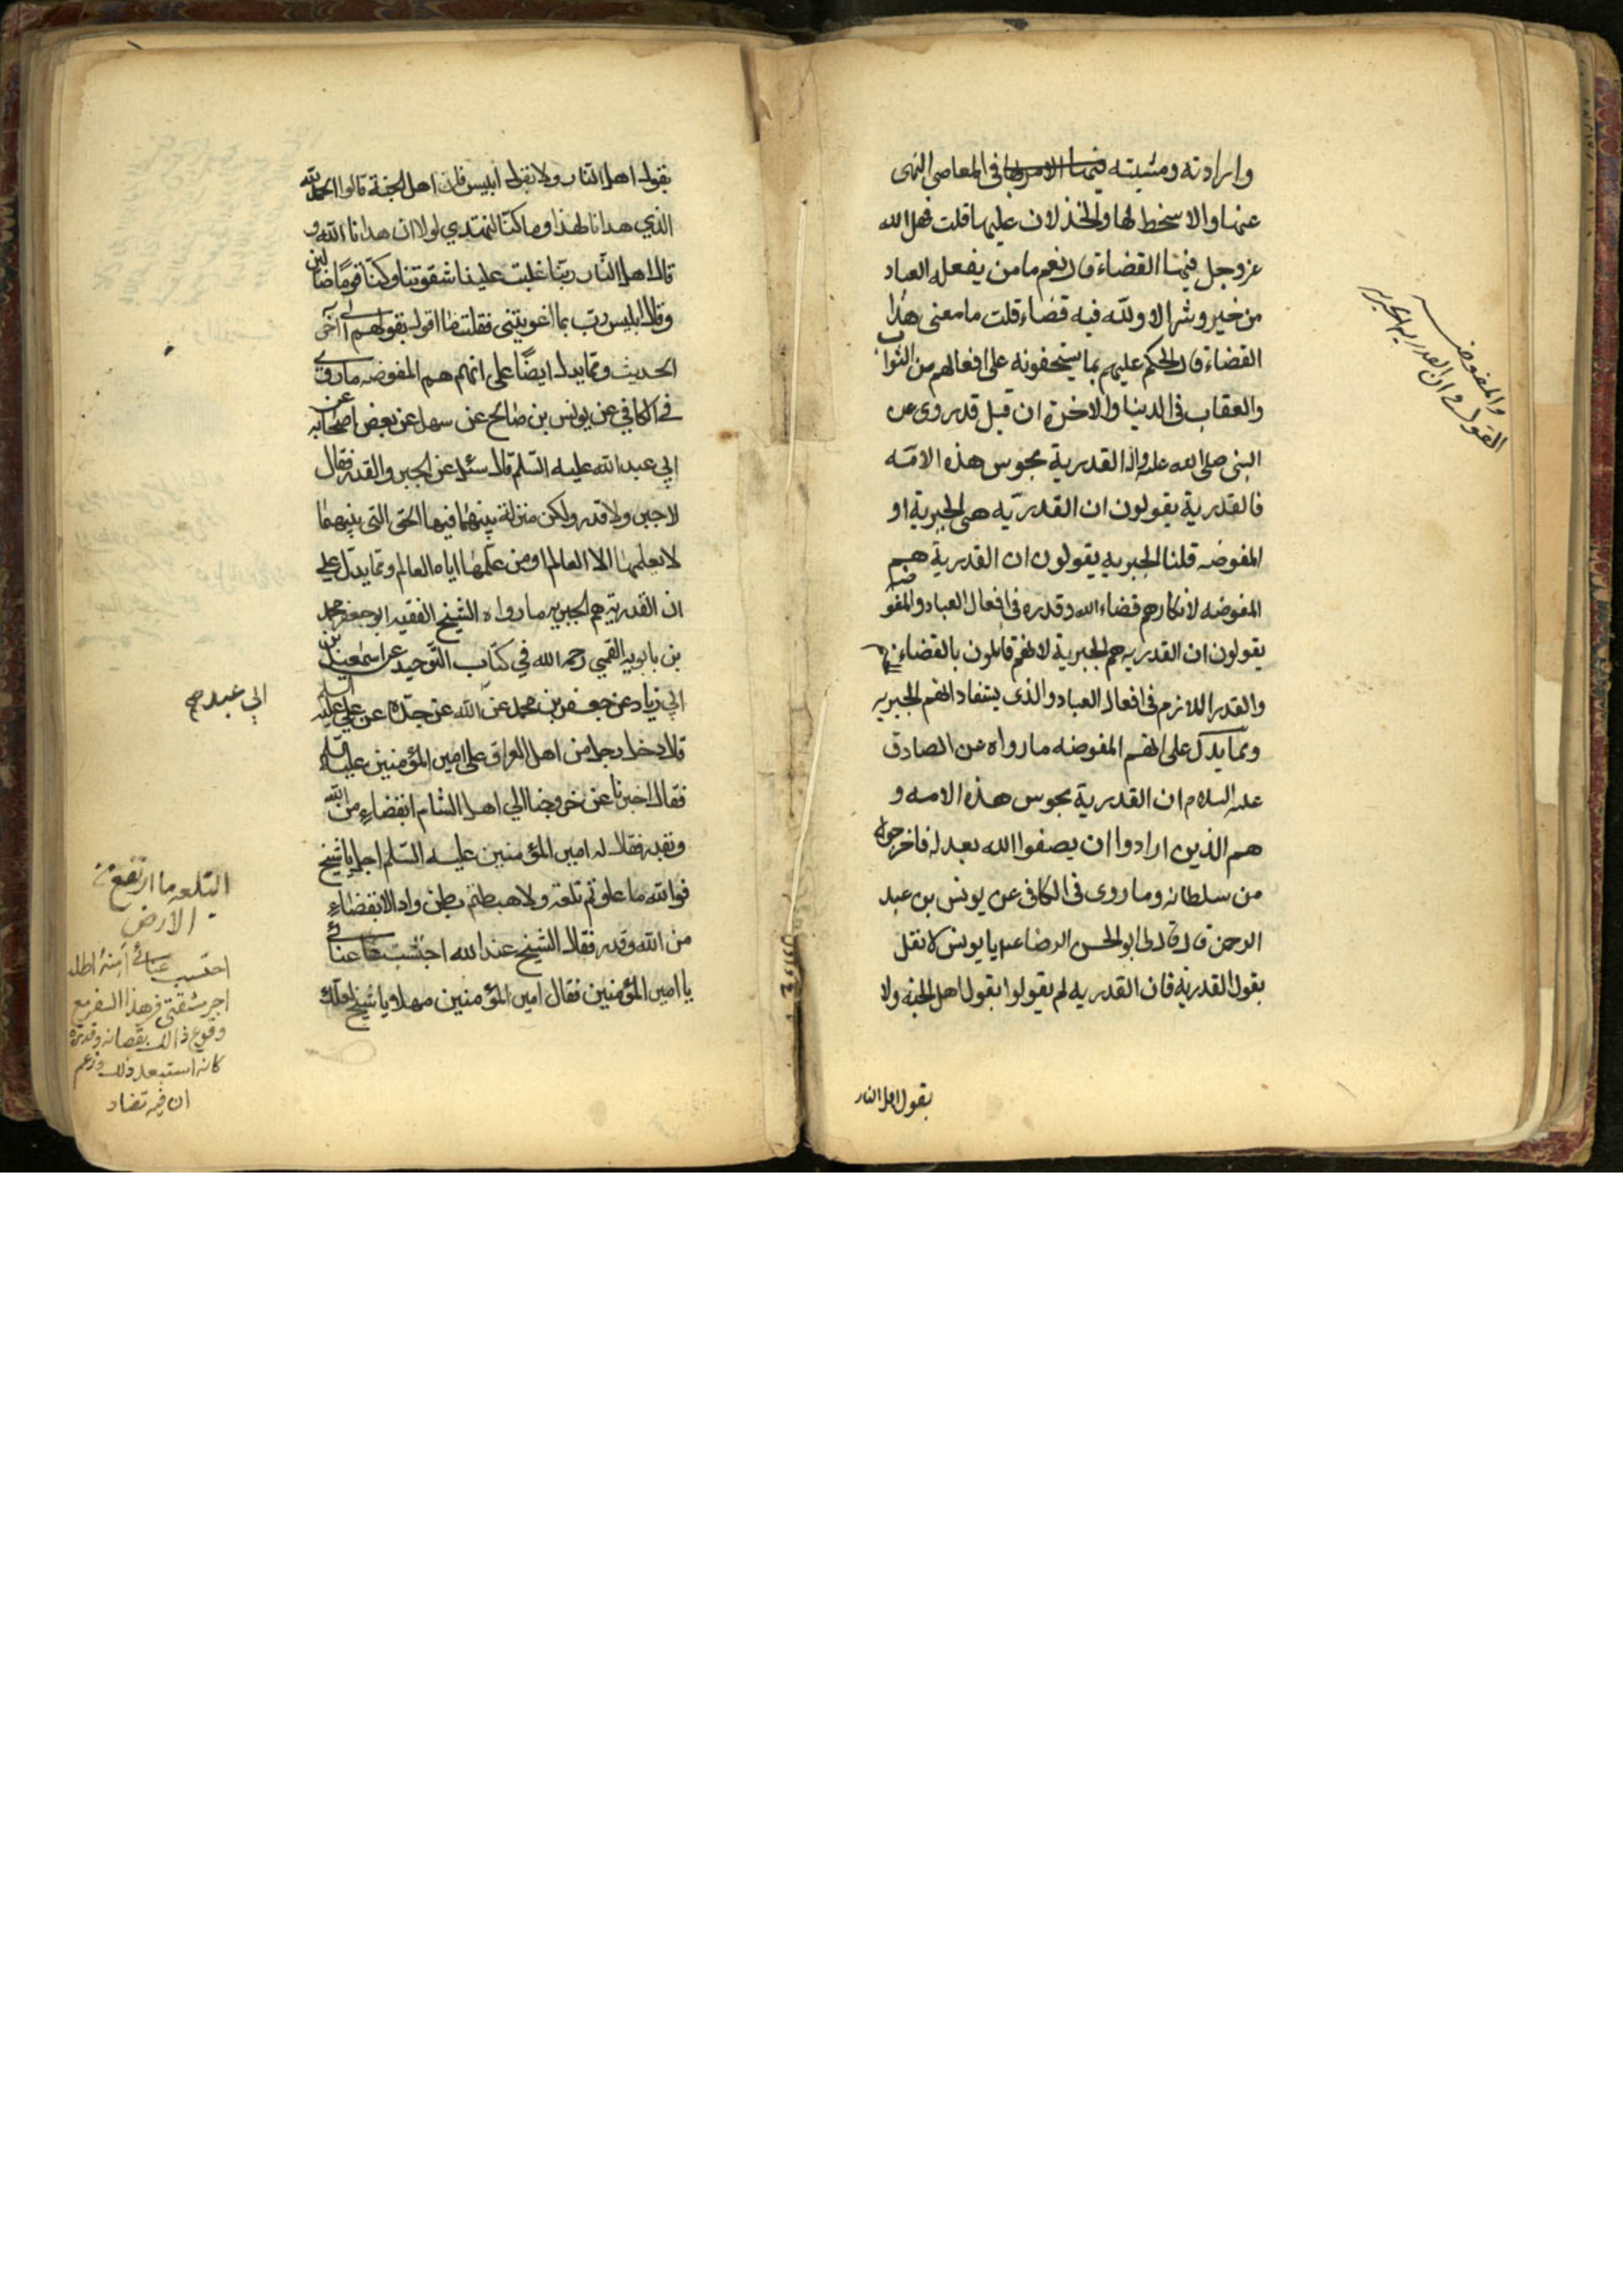 وارادته ومشيته فيها الامر بها فى المعاصى النهى
عنها والا سخط لها والخذلان عليها قلت فهل الله
عز وجل فيها القضاء قال نعم ما من يفعله العباد
من خير وشر الا ولله فيه قضاء قلت ما معنى هذا
القضاء قال الحكم عليهم بما يستحقونه على افعالهم من الثواب
والعقاب فى الدينا والاخرة ان قيل قد روى عن
النبى صلى الله عليه واله القدرية مجوس هذه الامّه
فالقدرية يقولون ان القدريّه هى الجبرية او
المفوضه قلنا الجبريه يقولون ان القدرية هم
المفوضه لانكارهم قضاء الله وقدره فى افعال العباد والمفوضه
يقولون ان القدريه هم الجبرية لانهم قايلون بالقضاء
والقدر اللازم فى افعال العباد والذى يستفاد انهم الجبريه
ومما يدل على انهم المفوضه ما رواه عن الصادق
عليه السلام ان القدرية مجوس هذه الامه و
هم الذين ارادوا ان يصفوا الله بعدله فاخرجوه
من سلطانه وما روى فى الكافى عن يونس بن عبد
الرحمن قال قال لى ابو الحسن الرضا عه يا يونس لا تقل
بقول القدرية فان القدريه لم يقولوا بقول اهل الجنه ولا
بقول اهل النار
والمفوضه
القول فى ان القدريه الجبريه
بقول اهل النار ولا بقول ابليس فان اهل الجنة قالوا الحمد لله
الذي هدانا لهذا وما كنا لنهتدي لولا ان هدانا الله و
قال اهل النار ربنا غلبت علينا شقوتنا وكنا قومًا ضالين
وقال ابليس رب بما اغويتنى فقلت ما اقول بقولهم الى آخر
الحديث ومما يدل ايضًا على انهم هم المفوضه ما روى
فى الكافي عن يونس بن صالح عن سهل عن بعض اصحابه عن
ابي عبد الله عليه السّلم قال سئل عن الجبر والقدر فقال
لا جبر ولا قدر ولكن منزلة بينهما فيها الحق التى بينهما
لا يعلمها الا العالم او من علمها اياه العالم ومما يدل على
ان القدرية هم الجبريه ما رواه الشيخ الفقيه ابو جعفر محمد
بن بابويه القمي رحمه الله في كتاب التوحيد عن اسمعيل بن
ابي زياد عن جعفر بن محمد عن الله عن جده عن علي عليه السلم
قال دخل رجل من اهل العراق على امير المؤمنين عليه السلم
فقال اخبرنا عن خروجنا الي اهل الشام ابقضاء من الله
وبقدر فقال له امير المؤمنين عليه السّلم اجل يا شيخ
فوالله ما علوتم تلعة ولا هبطتم بطن واد الا بقضاء
من الله وقدر فقال الشيخ عند الله احتسب عنائي
يا امير المؤمنين فقال امير المؤمنين مهلا يا شيخ لعلك
ابي عبد صح
التلعه ما ارتفع من
الارض
احتسب عنائي اطلب
اجر مشقتى فى هذا السفر مع
وقوع ذالك بقضائه وقدره
كانه استبعد ذلك وزعم
ان فيه تضاد